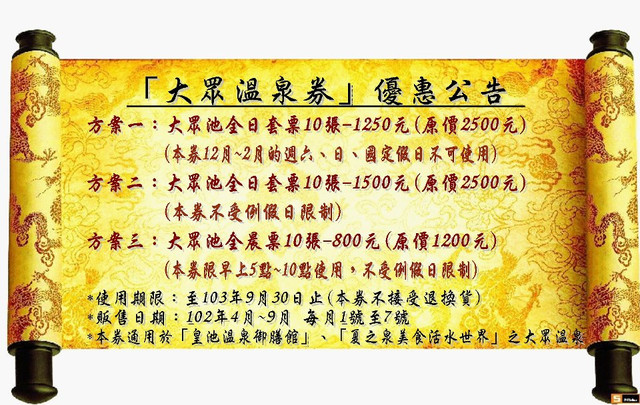 「大眾溫泉券」優惠公告
方案一：大眾池全日套票10張-1250元(原價2500元)
(本券12月~2月的週六、日、國定假日不可使用)
方案二：大眾池全日套票10張-1500元(原價2500元)
(本券不受例假日限制)
方案三：大眾池全晨票10張-800元(原價1200元)
(本券限早上5點~10點使用，不受例假日限制)
*使用期限：至103年9月30日止(本券不接受退換貨)
*販售日期：102年4月~9月 每月1號至7號
*本券通用於「皇池溫泉御膳館」、「夏之泉美食活水世界」之大眾溫泉